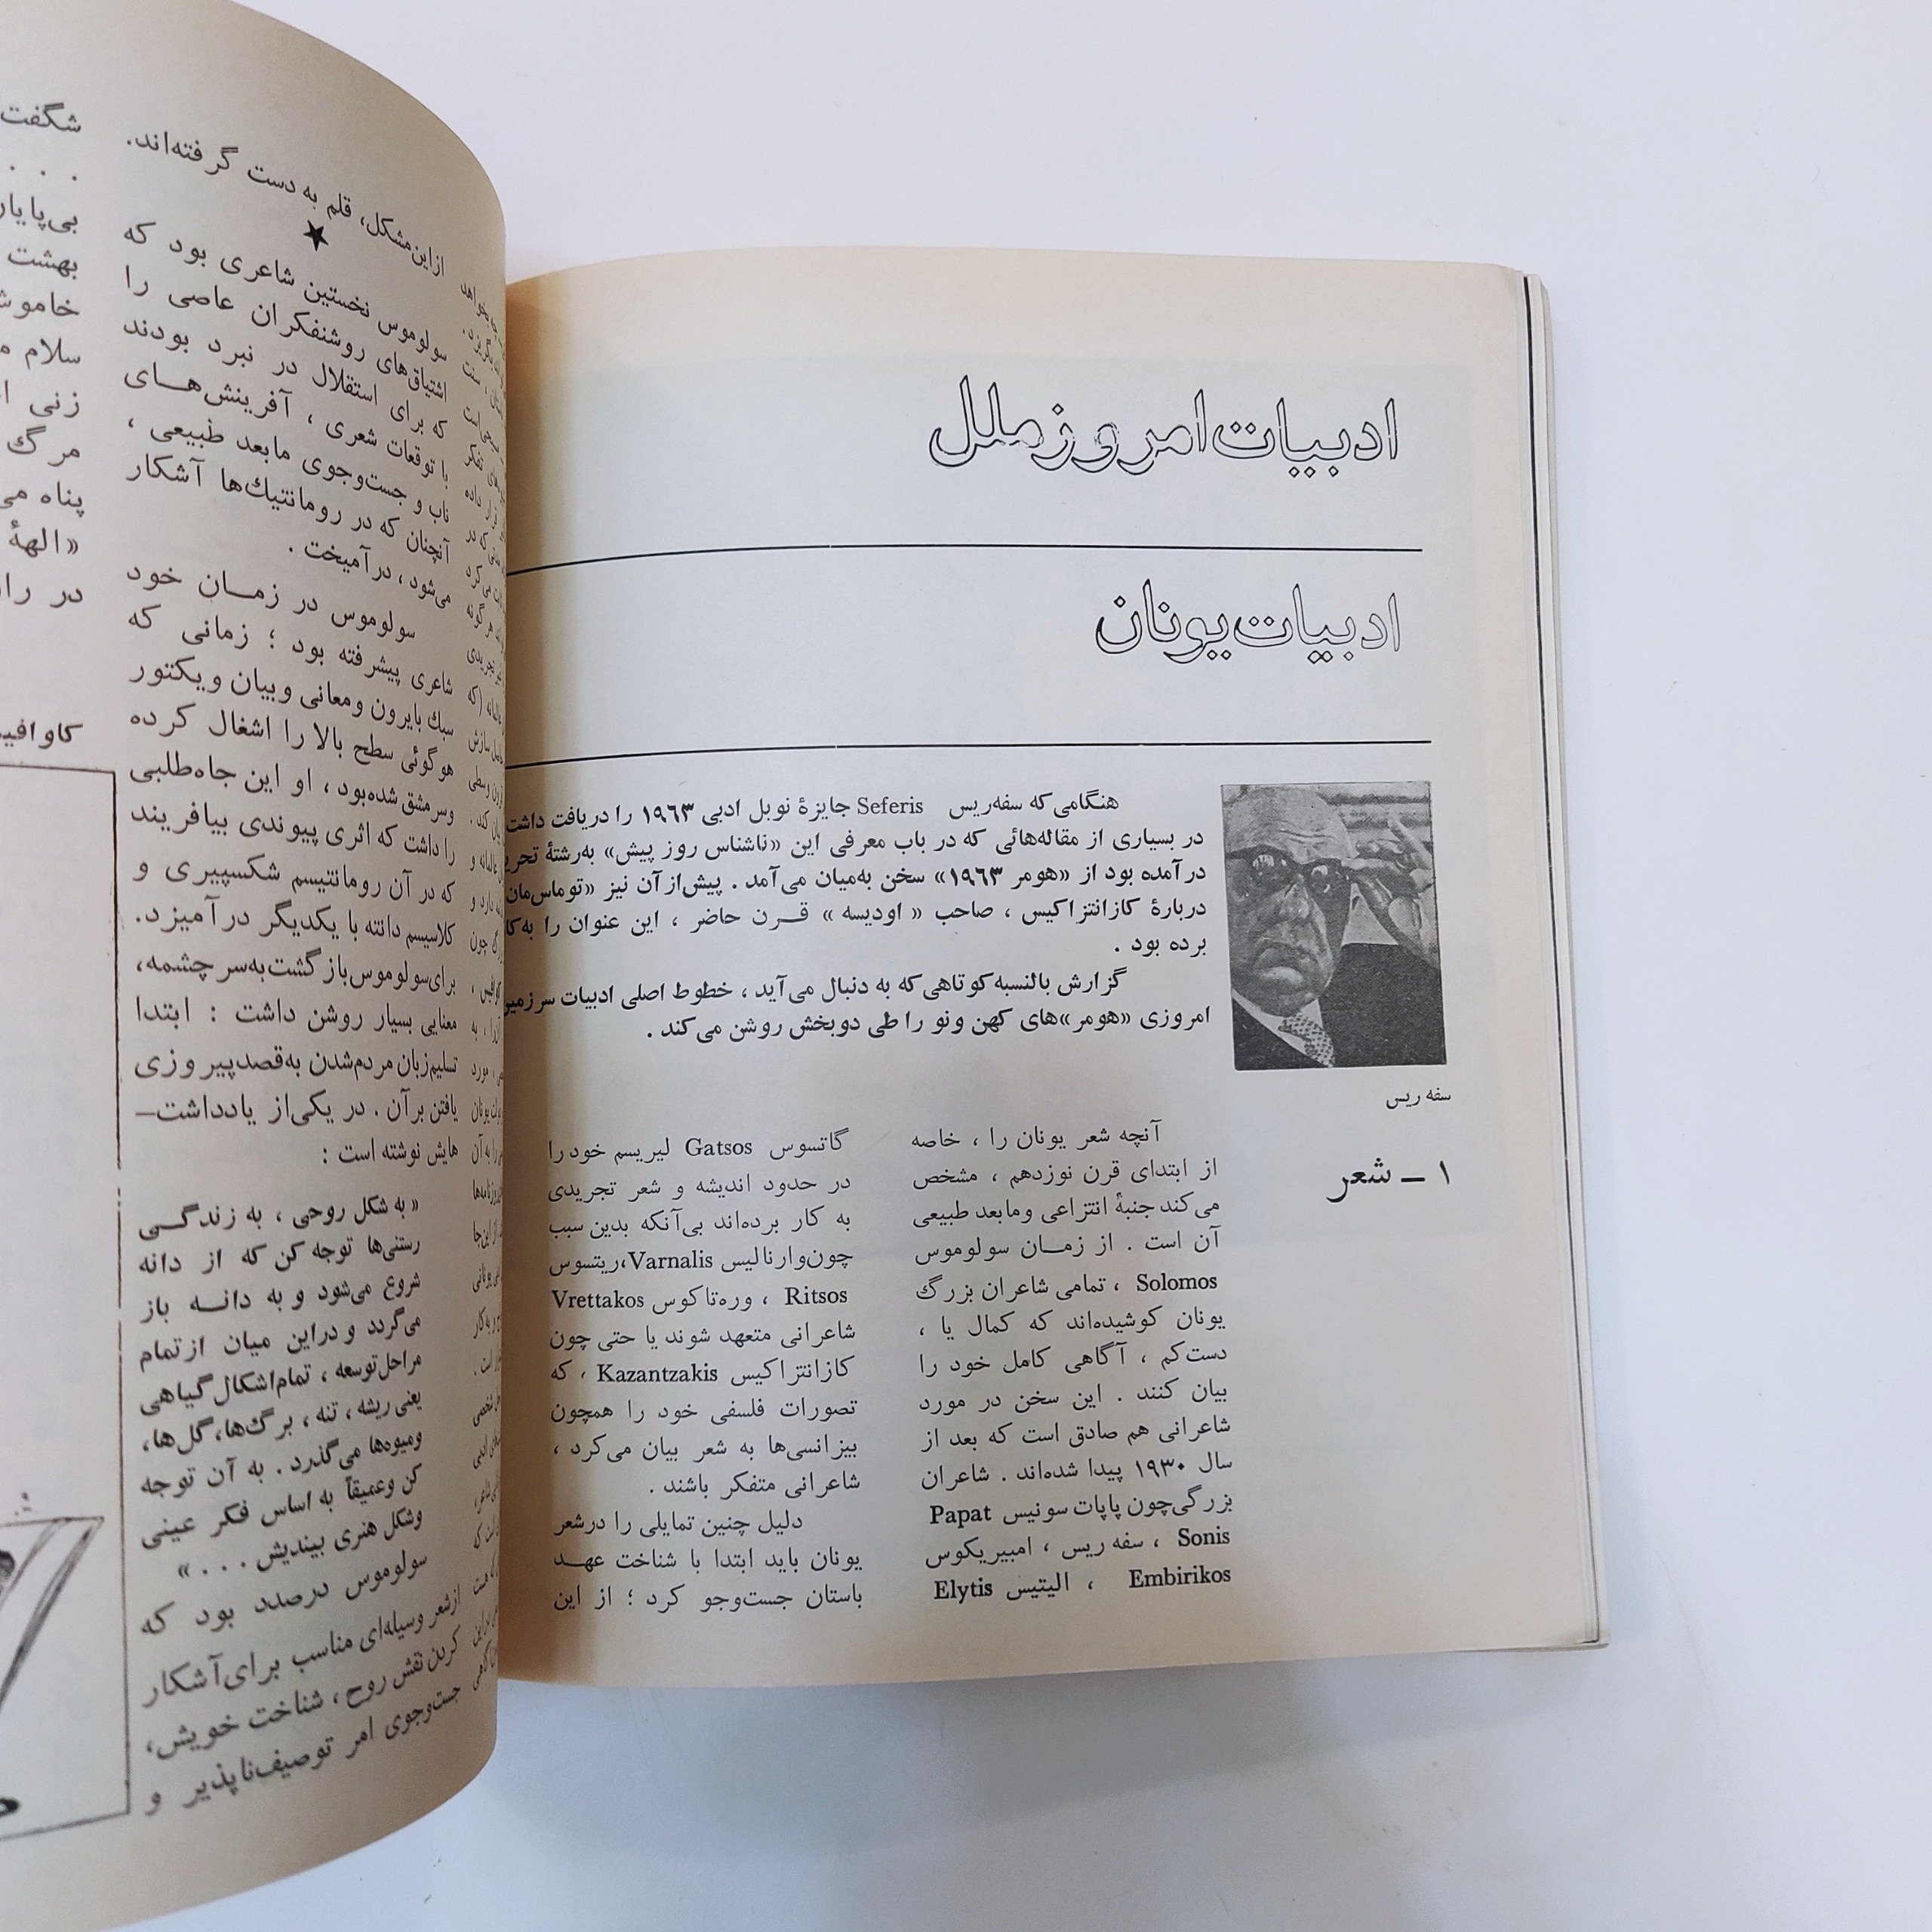 ادبیات امروز ملل
ادبیات یونان
هنگامی که سفه‌ریس Seferis جایزهٔ نوبل ادبی ۱۹۶۳ را دریافت داشت
در بسیاری از مقاله‌هائی که در باب معرفی این «ناشناس روز پیش» به‌رشتهٔ
درآمده بود از «هومر ۱۹۶۳» سخن به‌میان می‌آمد . پیش‌ازآن نیز «توماس‌مان
دربارهٔ کازانتزاکیس ، صاحب « اودیسه » قرن حاضر ، این عنوان را
برده بود .
گزارش بالنسبه کوتاهی که به دنبال می‌آید ، خطوط اصلی ادبیات سرزمین
امروزی «هومر»های کهن ونو را طی دوبخش روشن می‌کند .
سفه ریس
۱ ـ شعر
آنچه شعر یونان را ، خاصه
از ابتدای قرن نوزدهم ، مشخص
می‌کند جنبهٔ انتزاعی ومابعد طبیعی
آن است . از زمان سولوموس
Solomos ، تمامی شاعران بزرگ
یونان کوشیده‌اند که کمال یا ،
دست‌کم ، آگاهی کامل خود را
بیان کنند . این سخن در مورد
شاعرانی هم صادق است که بعد از
سال ۱۹۳۰ پیدا شده‌اند . شاعران
بزرگی‌چون پاپات سونیس Papat
Sonis ، سفه ریس ، امبیریکوس
Embirikos ، الیتیس Elytis
گاتسوس Gatsos لیریسم خودرا
در حدود اندیشه و شعر تجریدی
به کار برده‌اند بی‌آنکه بدین سبب
چون‌وارنالیس Varnalis،ریتسوس
Ritsos ، وره‌تاکوس Vrettakos
شاعرانی متعهد شوند یا حتی چون
کازانتزاکیس Kazantzakis ، که
تصورات فلسفی خود را همچون
بیزانسی‌ها به شعر بیان می‌کرد ،
شاعرانی متفکر باشند .
دلیل چنین تمایلی را درشعر
یونان باید ابتدا با شناخت عهد
باستان جست‌وجو کرد ؛ از این
ازاین‌مشکل، قلم به دست گرفته‌اند.
★
سولوموس نخستین شاعری بود که
اشتیاق‌های روشنفکران عاصی را
که برای استقلال در نبرد بودند
با توقعات شعری ، آفرینش‌های
ناب و جست‌وجوی مابعد طبیعی ،
آنچنان که در رومانتیك‌ها آشکار
می‌شود ، درآمیخت .
سولوموس در زمان خود
شاعری پیشرفته بود ؛ زمانی که
سبك بایرون ومعانی وبیان ویکتور
هوگوئی سطح بالا را اشغال کرده
وسرمشق شده‌بود ، او این جاه‌طلبی
را داشت که اثری پیوندی بیافریند
که در آن رومانتیسم شکسپیری و
کلاسیسم دانته با یکدیگر درآمیزد.
برای‌سولوموس‌بازگشت‌به‌سرچشمه،
معنایی بسیار روشن داشت : ابتدا
تسلیم‌زبان مردم‌شدن به‌قصدپیروزی
یافتن برآن . در یکی‌از یادداشت‌–
هایش نوشته است :
« به شکل روحی ، به زندگی
رستنی‌ها توجه کن که از دانه
شروع می‌شود و به دانه باز
می‌گردد و دراین میان ازتمام
مراحل‌توسعه ، تمام‌اشکال‌گیاهی
یعنی ریشه ، تنه ، برگ‌ها، گل‌ها،
ومیوه‌ها می‌گذرد . به آن توجه
کن وعمیقاً به اساس فکر عینی
وشکل هنری بیندیش . . . »
سولوموس درصدد بود که
ازشعر وسیله‌ای مناسب برای‌آشکار
کردن نقش روح ، شناخت خویش،
جست‌وجوی امر توصیف‌ناپذیر و
شگفت
. . .
بهشت
زنی
مرگ
«الههٔ
در